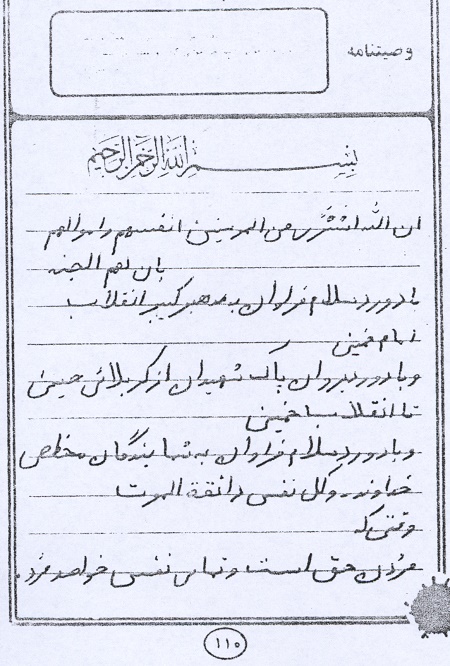 وصیتنامه
بسم الله الرحمن الرحیم
ان الله اشتری من المومنین انفسهم و اموالهم
بان لهم الجنه
با درود و سلام فراوان به رهبر کبیر انقلاب
امام خمینی
و با درود بر روان پاک شهیدان از کربلای حسین
تا انقلاب با خمینی
و با درود و سلام فراوان به شما بندگان مخلص
خداوند. و کل نفس ذائقة الموت
وقتی که
مردن حق است و تمامی نفس خواهد مرد.
۱۱۰